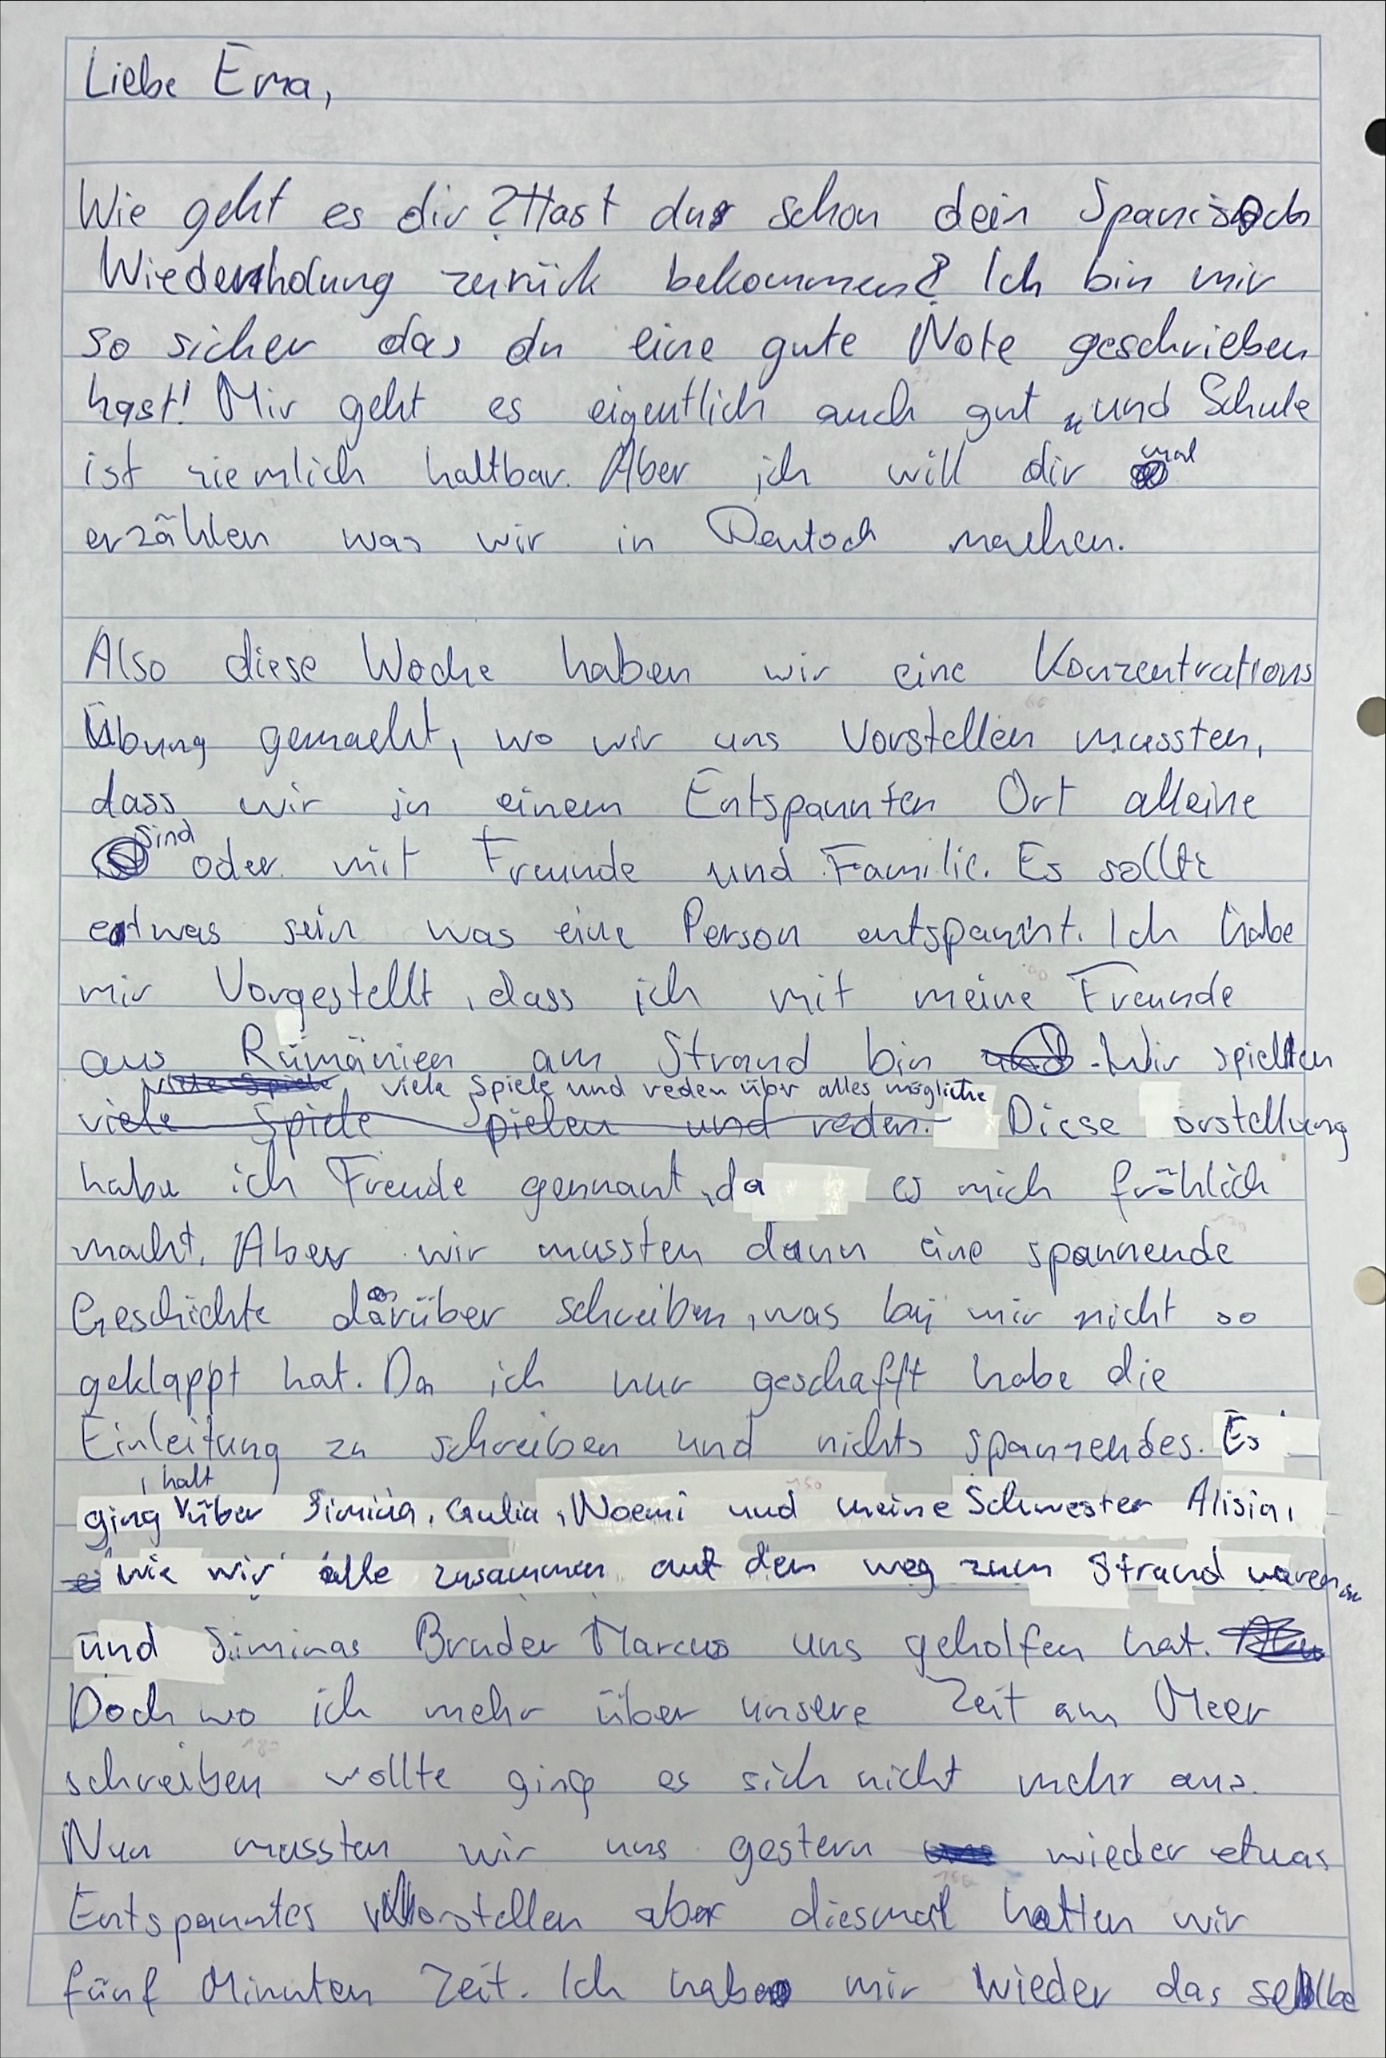 Liebe Ema,
Wie geht es dir? Hast du schon dein Spanisch
Wiederholung zurück bekommen? Ich bin mir
so sicher das du eine gute Note geschrieben
hast! Mir geht es eigentlich auch gut und Schule
ist ziemlich haltbar. Aber ich will dir mal
erzählen was wir in Deutsch machen.
Also diese Woche haben wir eine Konzentrations
Übung gemacht, wo wir uns Vorstellen mussten,
dass wir in einem Entspannten Ort alleine
sind oder mit Freunde und Familie. Es sollte
etwas sein was eine Person entspannt. Ich habe
mir Vorgestellt, dass ich mit meine Freunde
aus Rumänien am Strand bin. Wir spielten
viele Spiele und reden über alles mögliche
viele Spiele spielen und reden. Diese orstellung
habe ich Freude gennant, da es mich fröhlich
macht. Aber wir mussten dann eine spannende
Geschichte darüber schreiben, was bei mir nicht so
geklappt hat. Da ich nur geschafft habe die
Einleitung zu schreiben und nichts spannendes. Es
ging halt über Simina, Giulia, Noemi und meine Schwester Alisia,
wie wir alle zusammen auf den weg zum Strand waren
und Siminas Bruder Marcus uns geholfen hat.
Doch wo ich mehr über unsere Zeit am Meer
schreiben wollte ging es sich nicht mehr aus.
Nun mussten wir uns gestern wieder etwas
Entspanntes vorstellen aber diesmal hatten wir
fünf Minuten Zeit. Ich habe mir wieder das selbe